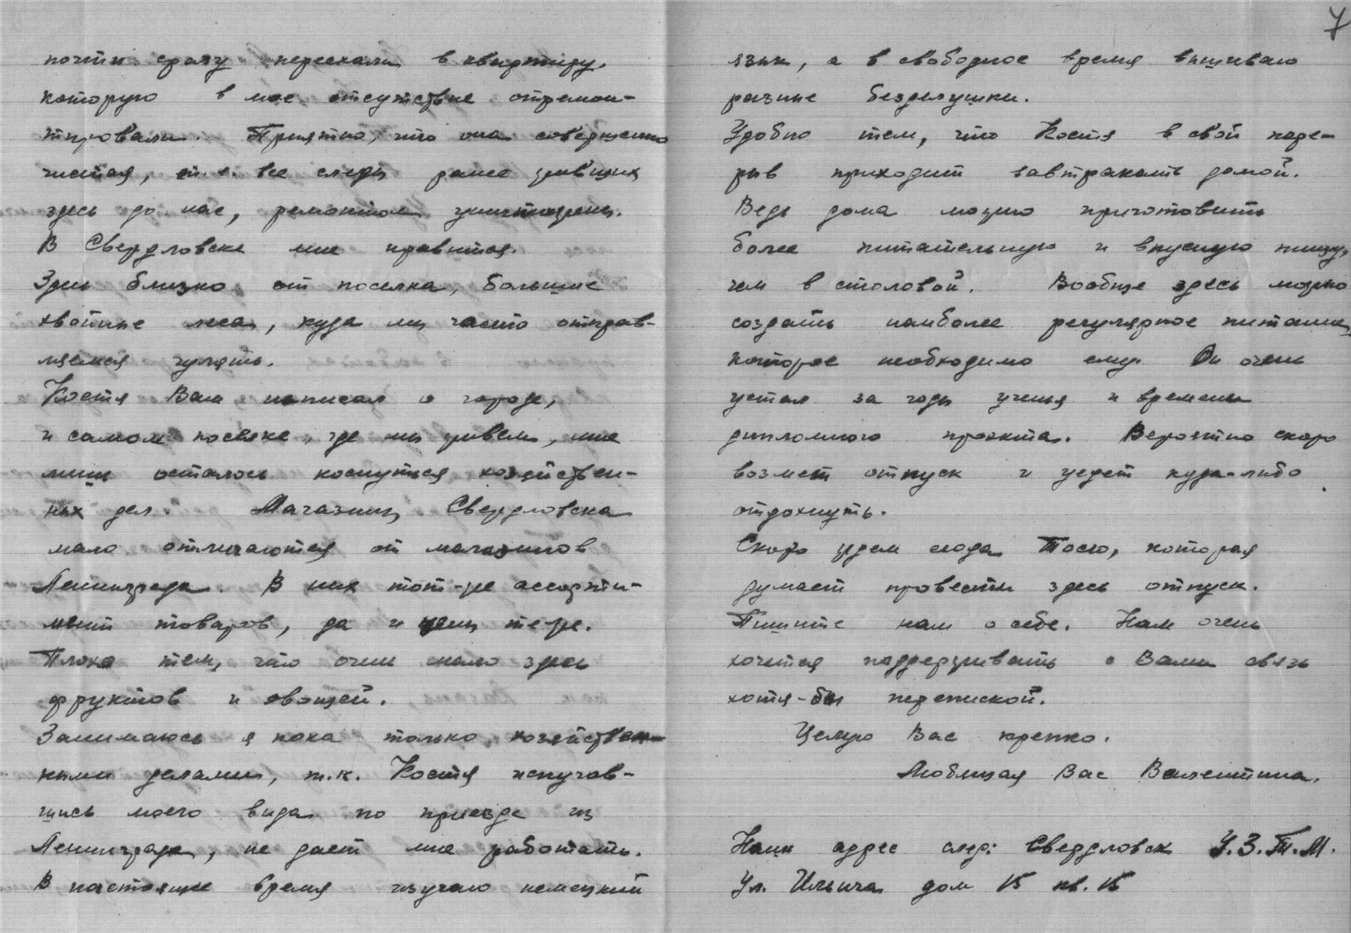 7
почти сразу переехали в квартиру,
которую в мое отсутствие отремон-
тировали. Приятно, что она совершенно
чистая, т.е. все следы ранее живших
здесь до нас, ремонтом уничтожены.
В Свердловске мне нравится.
Здесь близко от поселка, большие
хвойные леса, куда мы часто отправ-
ляемся гулять.
Костя Вам написал о городе,
и самом поселке, где мы живем, мне
лишь осталось коснуться хозяйствен-
ных дел. Магазины Свердловска
мало отличаются от магазинов
Ленинграда. В них тот-же ассорти-
мент товаров, да и цены те-же.
Плохо тем, что очень мало здесь
фруктов и овощей.
Занимаюсь я пока только хозяйствен-
ными делами, т.к. Костя испугав-
шись моего вида по приезде из
Ленинграда, не дает мне работать.
В настоящее время изучаю немецкий
язык, а в свободное время вышиваю
разные безделушки.
Удобно тем, что Костя в свой пере-
рыв приходит завтракать домой.
Ведь дома можно приготовить
более питательную и вкусную пищу,
чем в столовой. Вообще здесь можно
создать наиболее регулярное питание,
которое необходимо ему. Он очень
устал за годы ученья и времени
дипломного проэкта. Вероятно скоро
возмет отпуск и уедет куда-либо
отдохнуть.
Скоро ждем сюда Тосю, которая
думает провести здесь отпуск.
Пишите нам о себе. Нам очень
хочется поддерживать с Вами связь
хотя-бы перепиской.
Целую Вас крепко.
Любящая Вас Валентина.
Наш адрес след: Свердловск У.З.Т.М.
Ул. Ильича дом 15 кв. 15